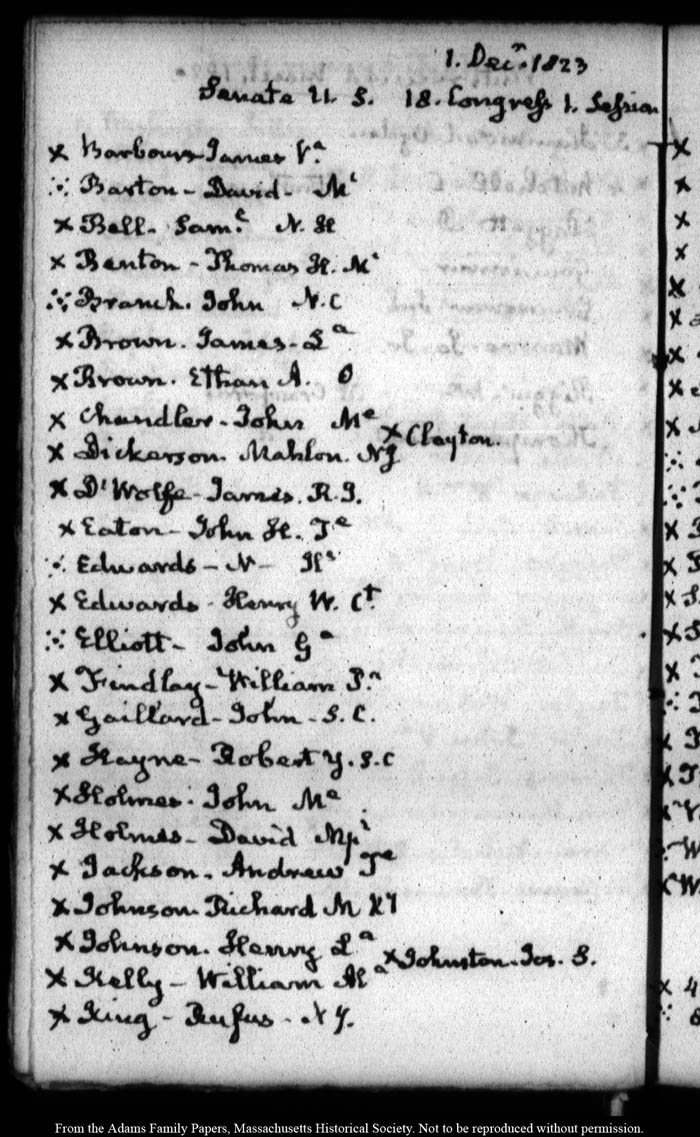 1. Decr. 1823
Senate U. S. 18. Congress 1. Session
x Barbour James Va.
:·: Barton - David - Mi
x Bell. Saml. N. H
x Benton - Thomas H. Mi
:·: Branch. John N. C
x Brown. James - La
x Brown. Ethan A. O
x Chandler - John Me
x Clayton.
x Dickerson. Mahlon. NJ
x D'Wolfe - James. R. I.
x Eaton - John H. Te
:·: Edwards - N - Is
x Edwards - Henry W. Ct.
:·: Elliott - John Ga
x Findlay - William Pa.
x Gaillard - John - S. C.
x Hayne - Robert Y. S. C
x Holmes. John Me
x Holmes - David Mpi
x Jackson. Andrew Te
x Johnson. Richard M KY
x Johnson. Henry La
x Johnston. Jos. S.
x Kelly - William Ala
x King - Rufus - N Y.
From the Adams Family Papers, Massachusetts Historical Society. Not to be reproduced without permission.